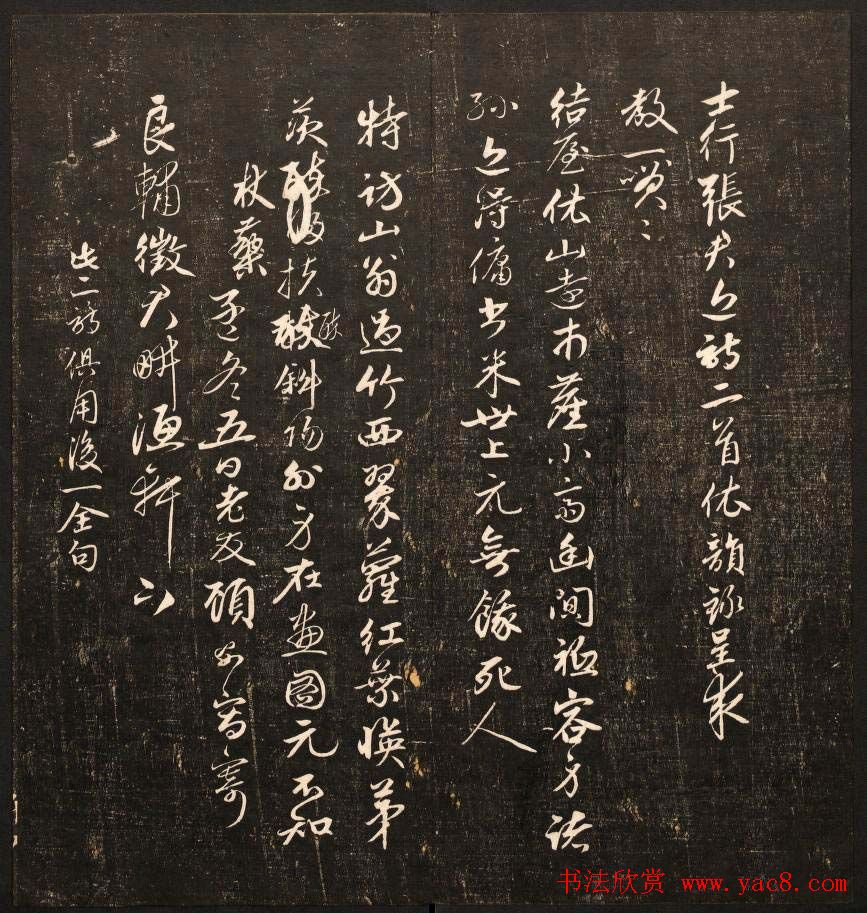 士行張君之詩二首依韻錄呈求
教一笑〻
結屋依山遠市塵小亭幽閒祗容身諸
孫已得傭書米世上元無餓死人
特訪山翁過竹西翠蘿紅葉暎茅
茨扶醉斜陽外身在畫圖元不知
杖藜孟冬五日老友碩寄
良輔徵君耕漁軒下
此二詩俱用後一全句
书法欣赏 www.yac8.com